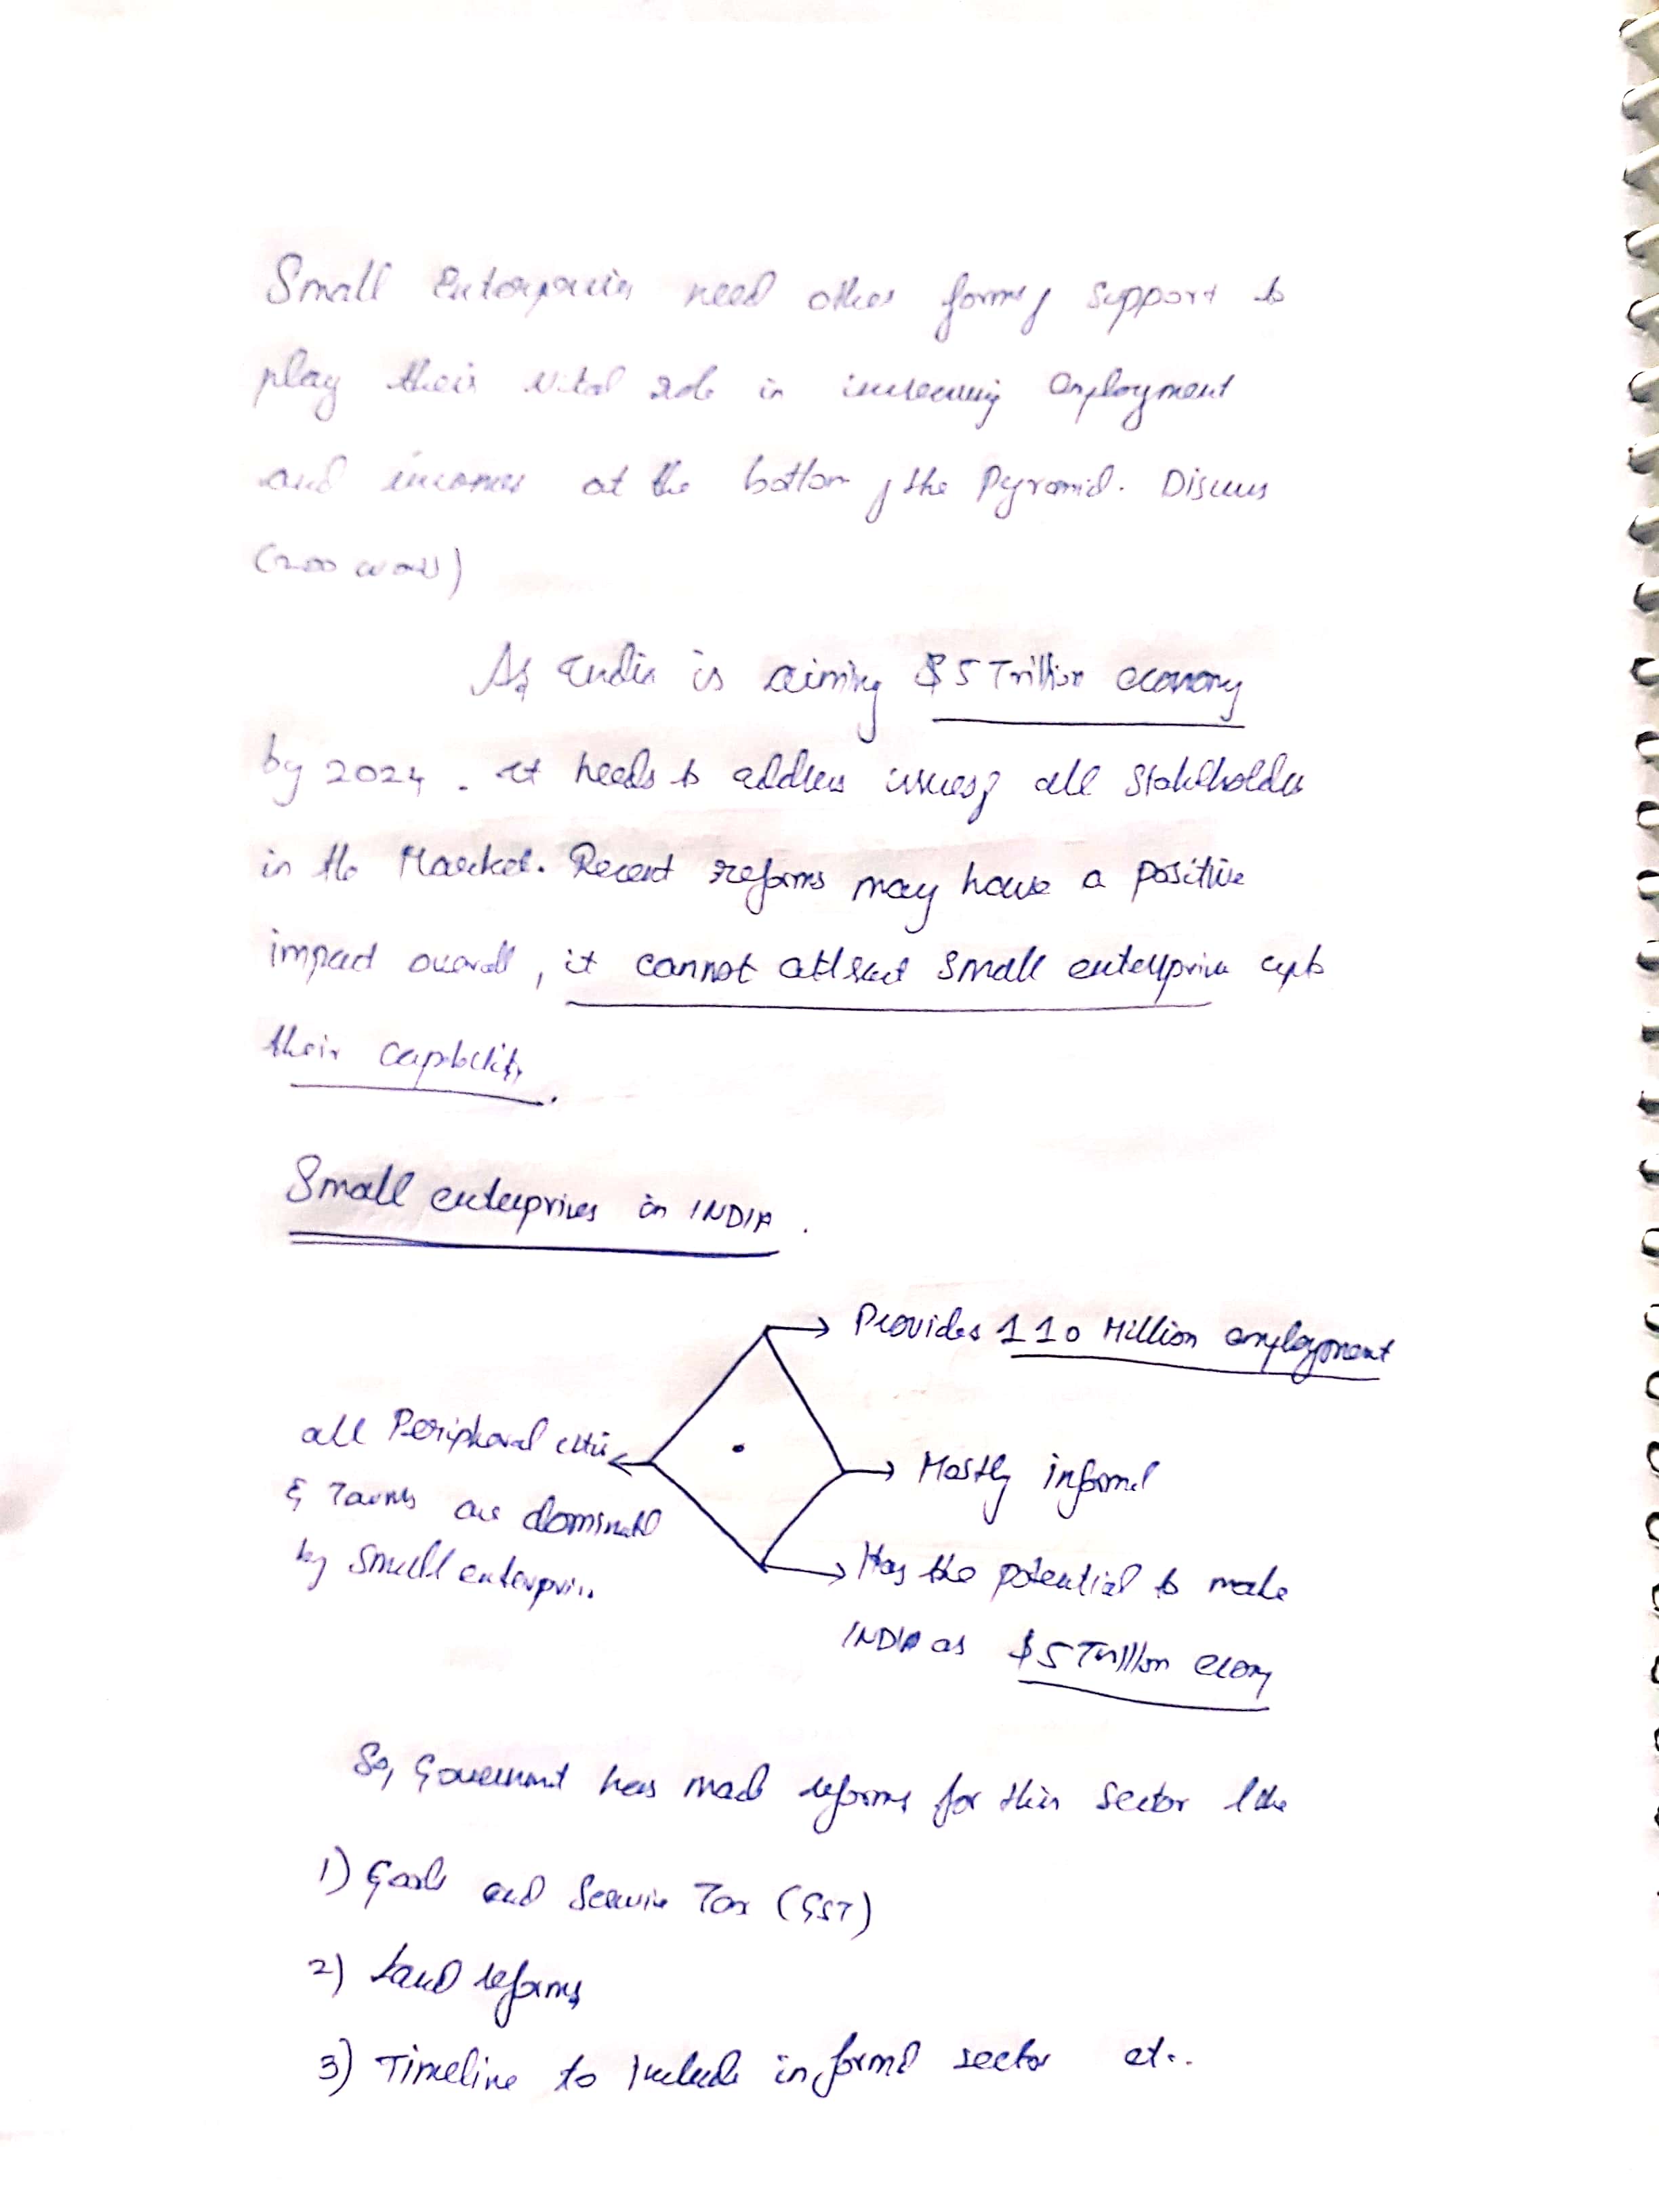 Small Enterprises need other forms of support to
play their vital role in increasing employment
and incomes at the bottom of the Pyramid. Discuss
(200 words)
As India is aiming $5 Trillion economy
by 2024. It needs to address issues of all Stakeholders
in the Market. Recent reforms may have a positive
impact overall, it cannot attract small enterprise upto
their capability.
Small enterprises in INDIA.
Provides 110 Million employment
all Peripheral cities
& Towns are dominated
by small enterprises
Mostly informal
Has the potential to make
INDIA as $5 Trillion econy
So, Government has made reforms for this sector like
1) Goods and Service Tax (GST)
2) Land reforms
3) Timeline to Include informal sector etc..